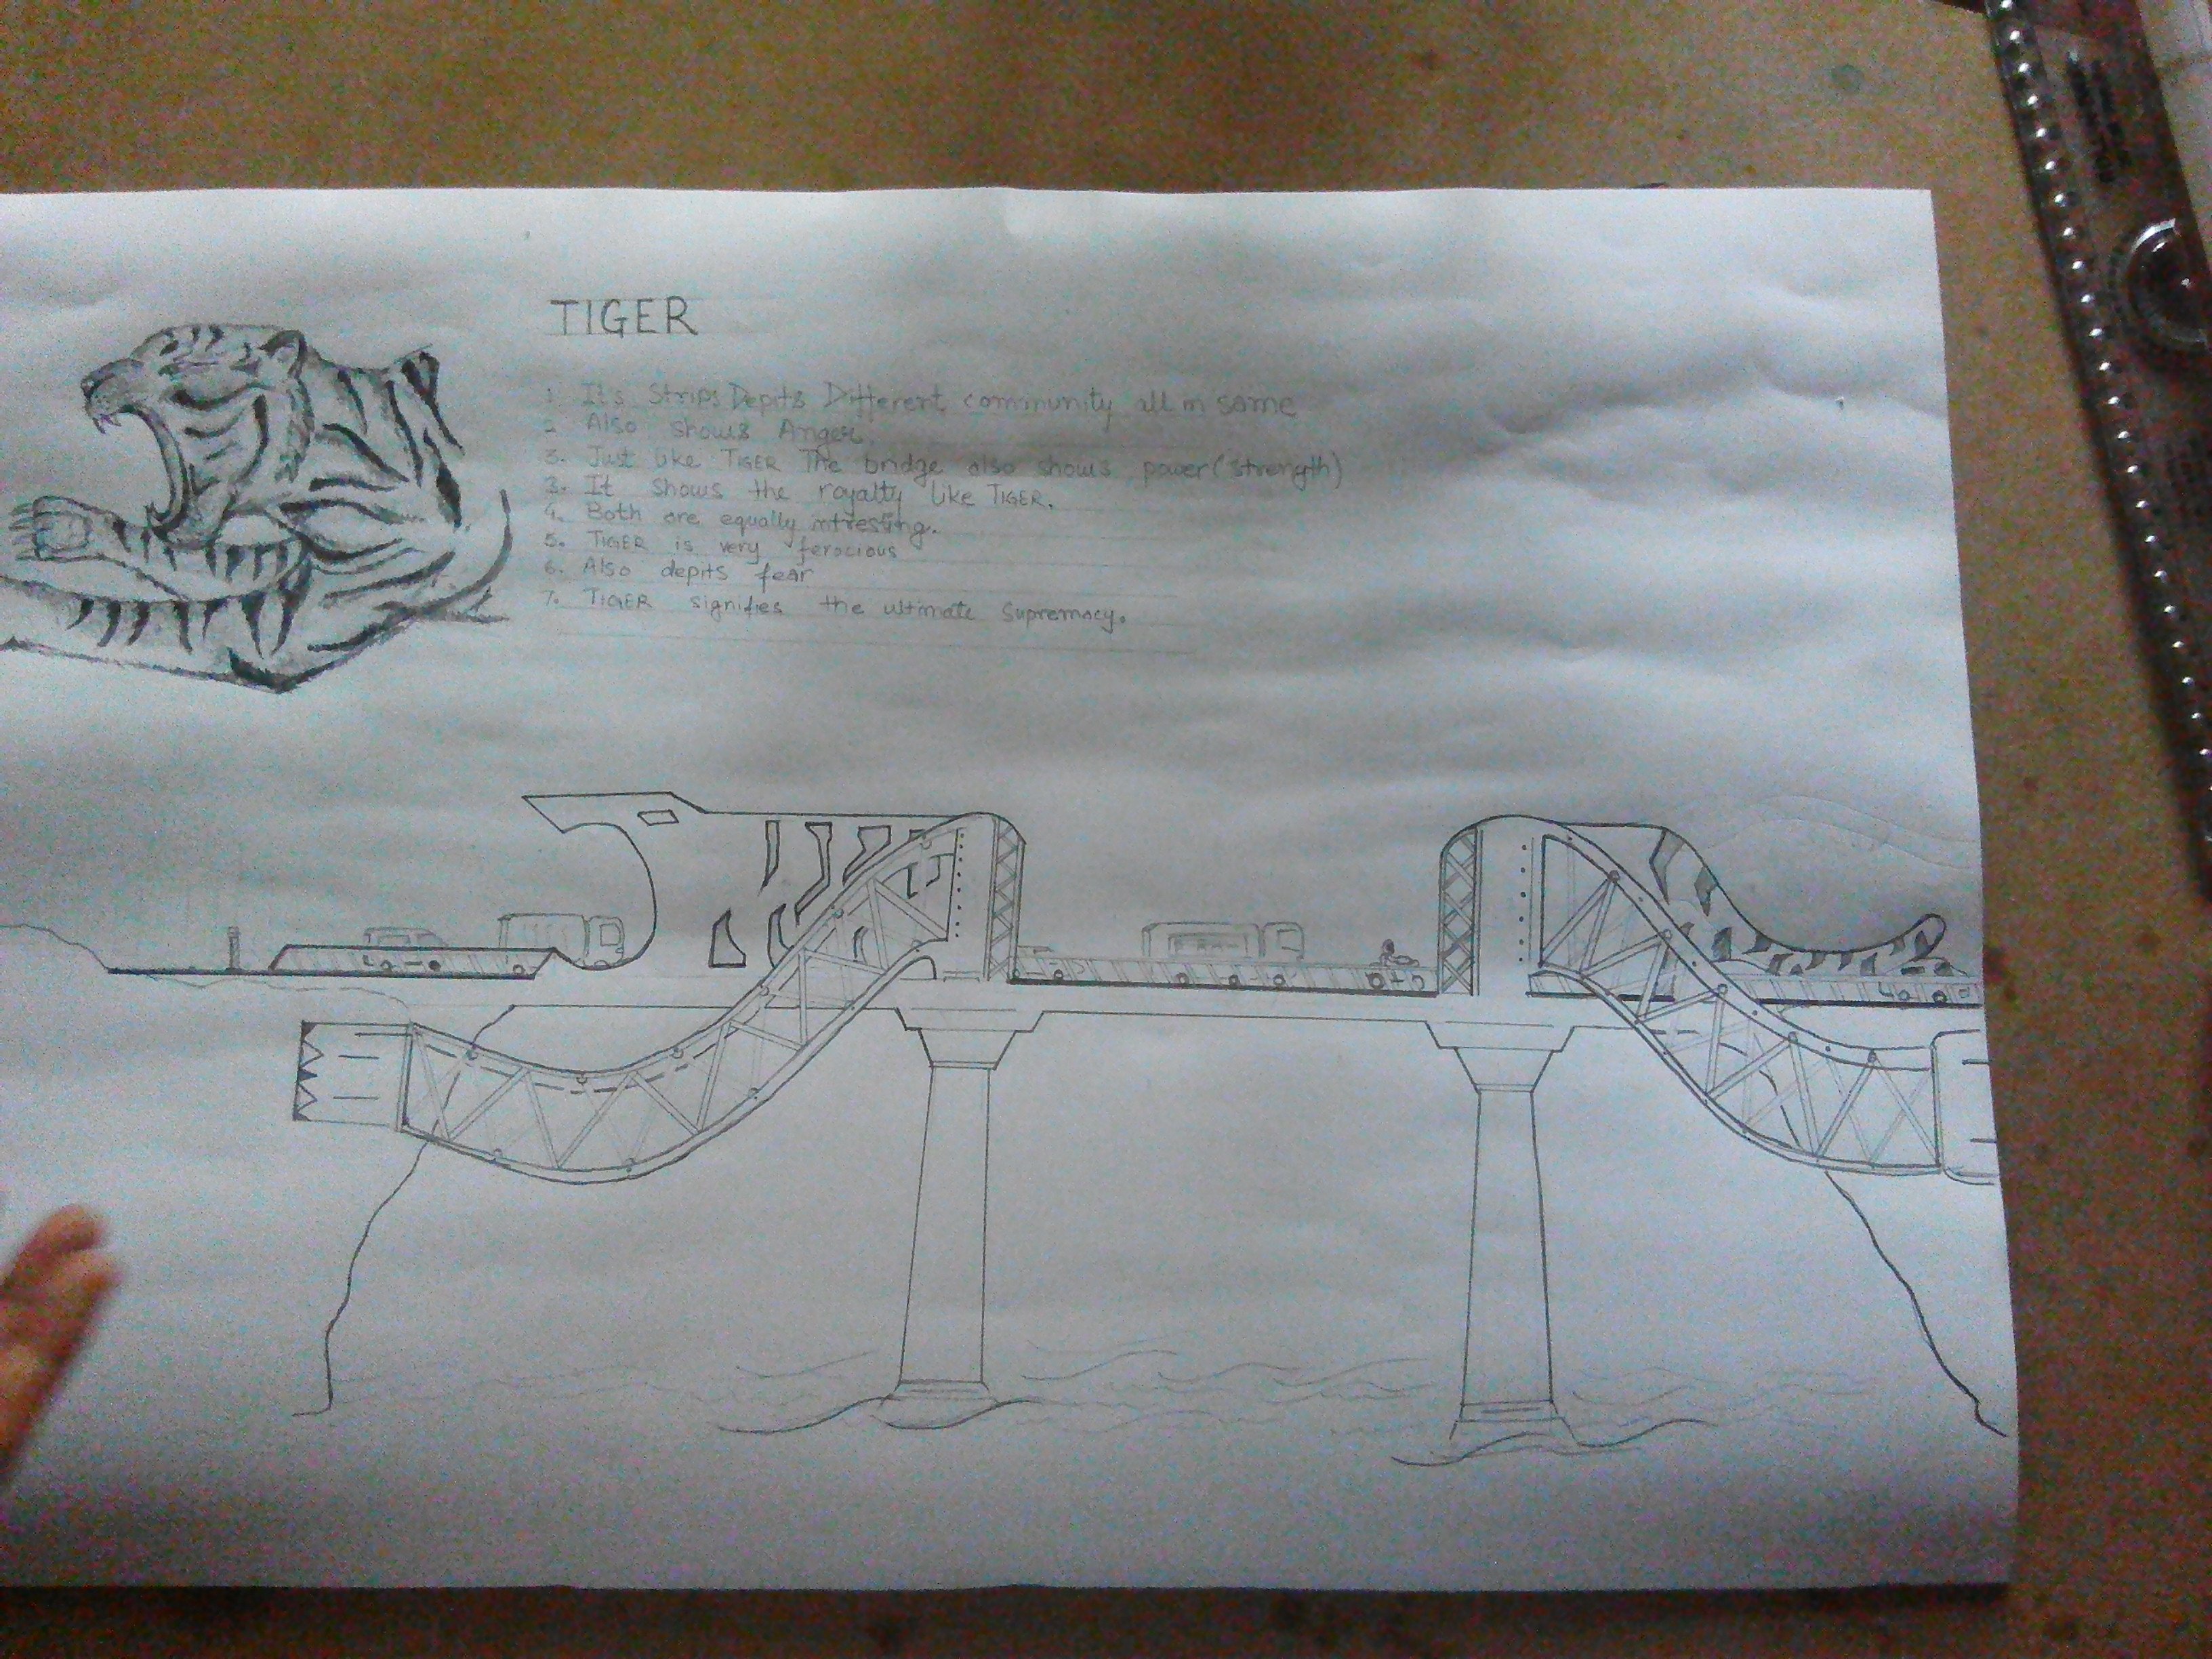 TIGER
1. It's Strips Depits Different community all in same
2. Also shows Anger.
3. Just like TIGER The bridge also shows power (strength)
3. It shows the royalty like TIGER.
4. Both are equally intresting.
5. TIGER is very ferocious
6. Also depits fear
7. TIGER signifies the ultimate supremacy.